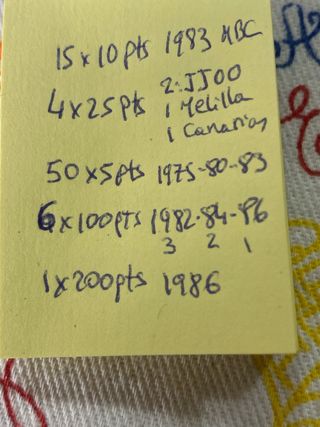 15 x 10 pts 1983 ABC
4 x 25 pts 2 JJOO
1 Melilla
1 Canarias
50 x 5 pts 1975-80-83
6 x 100 pts 1982-84-86
3 2 1
1 x 200 pts 1986